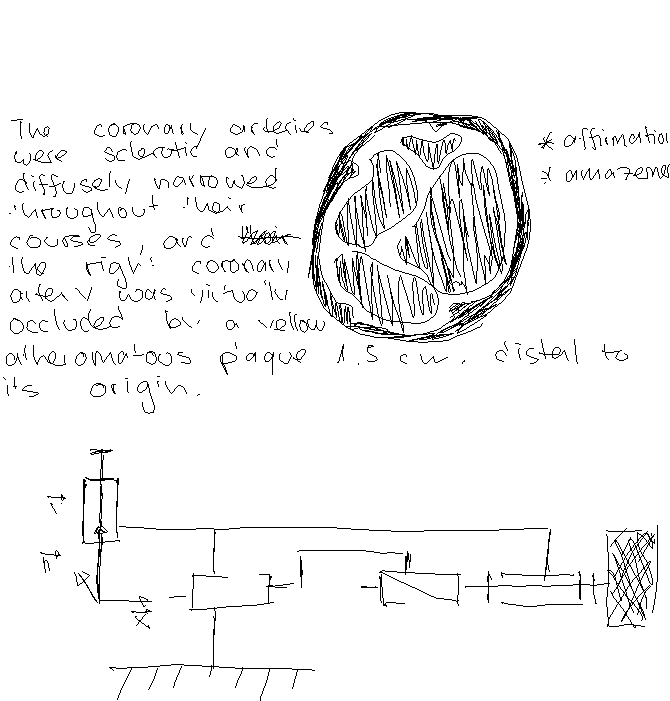 The coronary arteries
were sclerotic and
diffusely narrowed
throughout their
courses, and
the right coronary
artery was virtually
occluded by a yellow
atheromatous plaque 1.5 cm. distal to
its origin.
* affirmation
* amazeme